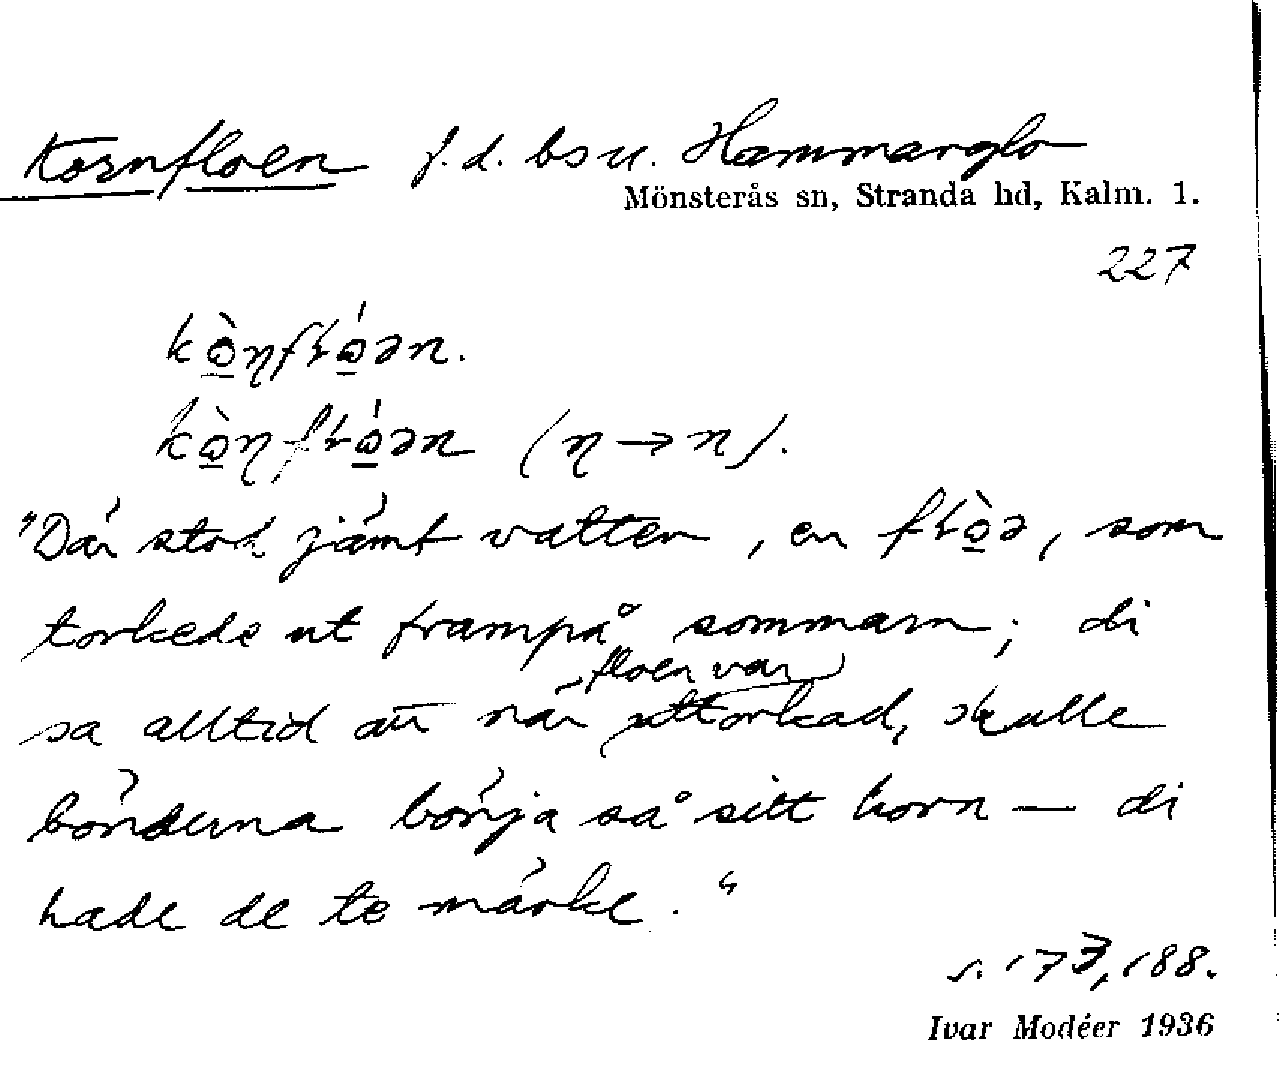 Kornfloen f.d. bs u. Hammarglo
Mönsterås sn, Stranda hd, Kalm. 1.
227
"Där stod jämt vatten, en som
torkede ut frampå sommarn; di
floen var
sa alltid att när uttorkad, skulle
bönderna börja så sitt korn — di
hade de te märke."
s. 173, 188.
Ivar Modéer 1936